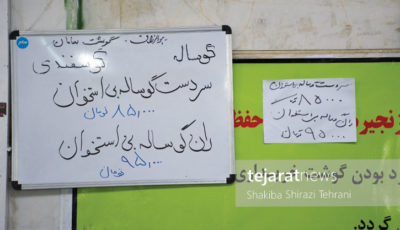 گوشت
گوساله گوسفندی
سردست گوساله بی استخوان
۸۵,۰۰۰ تومان
ران گوساله بی استخوان
۹۵,۰۰۰ تومان
سردست گوساله بی استخوان
۸۵۰۰۰
ران گوساله بی استخوان
۹۵۰۰۰
زنجیر
حفظ
رد بودن گوشت
گردد.
tejaratnews
Shakiba Shirazi Tehrani